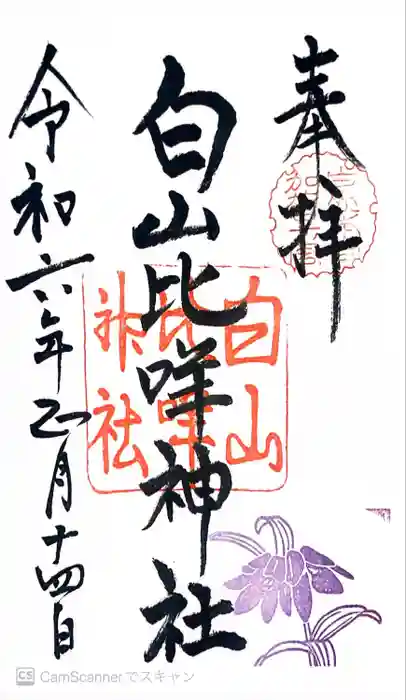 奉拝
白山比咩神社
令和六年正月十四日
白山
比咩
神社
CS CamScannerでスキャン